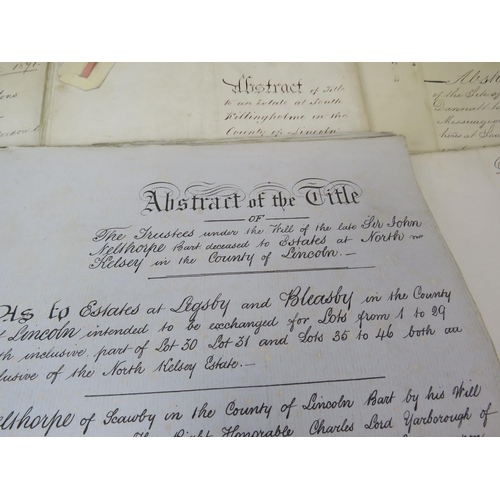 1871.
Abstract
of Title
to an Estate at South
Killingholme in the
County of Lincoln
of the
Messuage
Abstract of the Title
OF
The Trustees under the Will of the late Sir John
Nelthorpe Bart deceased to Estates at North
Kelsey in the County of Lincoln.—
As to Estates at Legsby and Bleasby in the County
Lincoln intended to be exchanged for Lots from 1 to 29
inclusive, part of Lot 30 Lot 31 and Lots 35 to 46 both
of the North Kelsey Estate.—
elthorpe of Scawby in the County of Lincoln Bart by his Will
Right Honorable Charles Lord Yarborough of